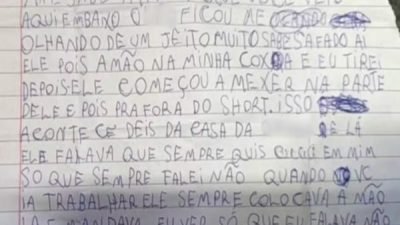 AQUI EMBAIXO O FICOU ME
OLHANDO DE UM JEITO MUITO SAFADO AI
ELE POIS A MÃO NA MINHA COXA E EU TIREI
DEPOIS ELE COMEÇOU A MEXER NA PARTE
DELE E POIS PRA FORA DO SHORT. ISSO
ACONTECE DÊIS DA CASA DA LÁ
ELE FALAVA QUE SEMPRE QUIS EM MIM
SO QUE SEMPRE FALEI NÃO QUANDO VC
IA TRABALHAR ELE SEMPRE COLOCAVA A MÃO
SÓ QUE EU FALAVA NÃO